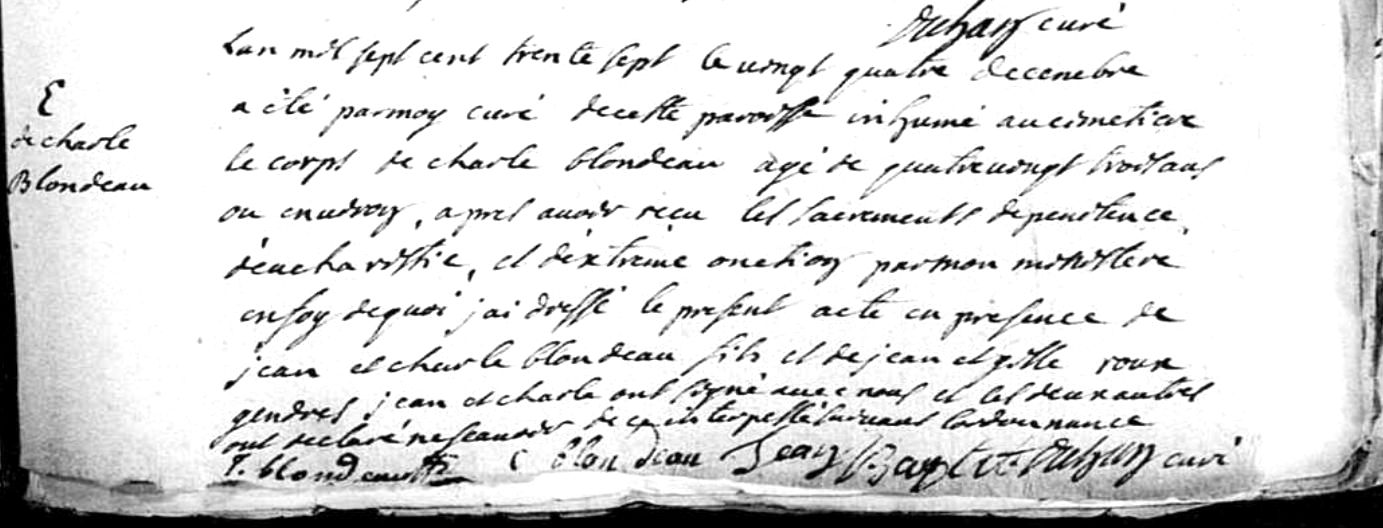 Duhan curé
Lan mil sept cent trente sept le vingt quatre decembre
a été par moy curé de cette paroisse inhumé au cimetiere
le corps de charle blondeau agé de quatrevingt trois ans
ou environ, apres avoir reçu les sacrements de penitence,
d'eucharistie, et d'extrême onction par mon ministere
en foy de quoi j'ai dressé le present acte en presence de
jean et charle blondeau fils et de jean et gille roux
gendres jean et charle ont signé avec nous et les deux autres
ont declaré ne scavoir de ce interpellé suivant l'ordonnance
J. blondeau C blondeau Jean Baptiste Duhan curé
E
de charle
Blondeau